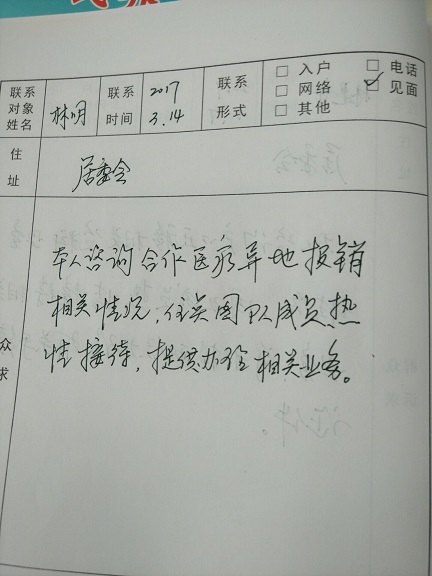 联系对象姓名 林明 联系时间 2017 3.14 联系形式 □ 入户 □ 电话 □ 网络 ☑ 见面 □ 其他
住址 居委会
众 求
本人咨询合作医疗异地报销
相关情况,任英团队成员热
情接待,提供办理相关业务。